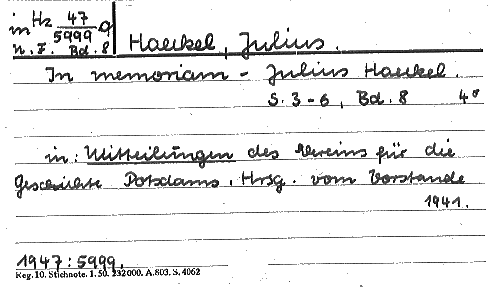 in Hz 47/5999 g
N.F. Bd. 8
Haeckel, Julius.
In memoriam - Julius Haeckel.
S. 3-6, Bd. 8 4°
in: Mitteilungen des Vereins für die
Geschichte Potsdams. Hrsg. vom Vorstande
1941.
1947:5999.
Reg. 10. Stichnote. 1. 50. 232000. A. 803. S. 4062